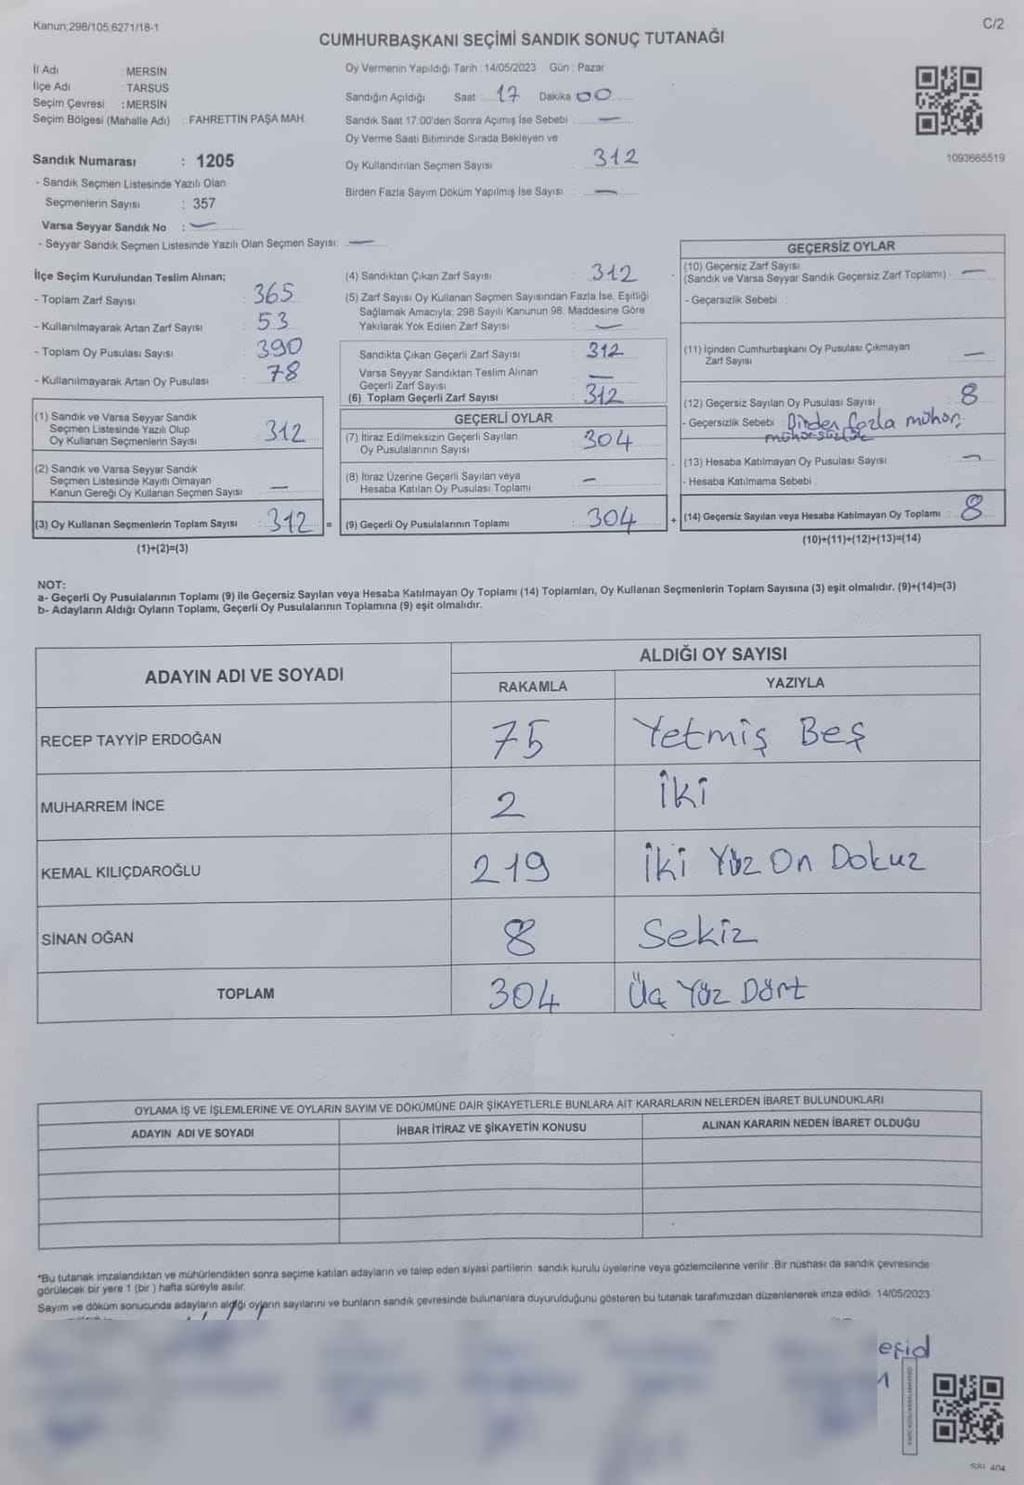 Kanun:298/105,6271/18-1
C/2
CUMHURBAŞKANI SEÇİMİ SANDIK SONUÇ TUTANAĞI
İl Adı MERSİN
İlçe Adı TARSUS
Seçim Çevresi : MERSİN
Seçim Bölgesi (Mahalle Adı) : FAHRETTİN PAŞA MAH.
Sandık Numarası : 1205
- Sandık Seçmen Listesinde Yazılı Olan
Seçmenlerin Sayısı : 357
Varsa Seyyar Sandık No : —
- Seyyar Sandık Seçmen Listesinde Yazılı Olan Seçmen Sayısı: —
Oy Vermenin Yapıldığı Tarih : 14/05/2023 Gün : Pazar
Sandığın Açıldığı Saat 17 Dakika 00
Sandık Saat 17:00'den Sonra Açılmış İse Sebebi : —
Oy Verme Saati Bitiminde Sırada Bekleyen ve
Oy Kullandırılan Seçmen Sayısı 312
Birden Fazla Sayım Döküm Yapılmış İse Sayısı : —
1093665519
İlçe Seçim Kurulundan Teslim Alınan;
- Toplam Zarf Sayısı : 365
- Kullanılmayarak Artan Zarf Sayısı : 53
- Toplam Oy Pusulası Sayısı : 390
- Kullanılmayarak Artan Oy Pusulası : 78
(1) Sandık ve Varsa Seyyar Sandık
Seçmen Listesinde Yazılı Olup
Oy Kullanan Seçmenlerin Sayısı 312
(2) Sandık ve Varsa Seyyar Sandık
Seçmen Listesinde Kayıtlı Olmayan
Kanun Gereği Oy Kullanan Seçmen Sayısı —
(3) Oy Kullanan Seçmenlerin Toplam Sayısı : 312 =
(1)+(2)=(3)
(4) Sandıktan Çıkan Zarf Sayısı : 312
(5) Zarf Sayısı Oy Kullanan Seçmen Sayısından Fazla İse, Eşitliği
Sağlamak Amacıyla; 298 Sayılı Kanunun 98. Maddesine Göre
Yakılarak Yok Edilen Zarf Sayısı : —
Sandıkta Çıkan Geçerli Zarf Sayısı : 312
Varsa Seyyar Sandıktan Teslim Alınan
Geçerli Zarf Sayısı : —
(6) Toplam Geçerli Zarf Sayısı : 312
GEÇERLİ OYLAR
(7) İtiraz Edilmeksizin Geçerli Sayılan
Oy Pusulalarının Sayısı : 304
(8) İtiraz Üzerine Geçerli Sayılan veya
Hesaba Katılan Oy Pusulası Toplamı : —
(9) Geçerli Oy Pusulalarının Toplamı : 304 +
GEÇERSİZ OYLAR
(10) Geçersiz Zarf Sayısı
(Sandık ve Varsa Seyyar Sandık Geçersiz Zarf Toplamı) : —
- Geçersizlik Sebebi :
(11) İçinden Cumhurbaşkanı Oy Pusulası Çıkmayan
Zarf Sayısı : —
(12) Geçersiz Sayılan Oy Pusulası Sayısı : 8
- Geçersizlik Sebebi : Birden fazla mühür;
(13) Hesaba Katılmayan Oy Pusulası Sayısı : —
- Hesaba Katılmama Sebebi :
(14) Geçersiz Sayılan veya Hesaba Katılmayan Oy Toplamı : 8
(10)+(11)+(12)+(13)=(14)
NOT:
a- Geçerli Oy Pusulalarının Toplamı (9) ile Geçersiz Sayılan veya Hesaba Katılmayan Oy Toplamı (14) Toplamları, Oy Kullanan Seçmenlerin Toplam Sayısına (3) eşit olmalıdır. (9)+(14)=(3)
b- Adayların Aldığı Oyların Toplamı, Geçerli Oy Pusulalarının Toplamına (9) eşit olmalıdır.
ADAYIN ADI VE SOYADI
ALDIĞI OY SAYISI
RAKAMLA YAZIYLA
RECEP TAYYİP ERDOĞAN 75 Yetmiş Beş
MUHARREM İNCE 2 İki
KEMAL KILIÇDAROĞLU 219 İki Yüz On Dokuz
SİNAN OĞAN 8 Sekiz
TOPLAM 304 Üç Yüz Dört
OYLAMA İŞ VE İŞLEMLERİNE VE OYLARIN SAYIM VE DÖKÜMÜNE DAİR ŞİKAYETLERLE BUNLARA AİT KARARLARIN NELERDEN İBARET BULUNDUKLARI
ADAYIN ADI VE SOYADI İHBAR İTİRAZ VE ŞİKAYETİN KONUSU ALINAN KARARIN NEDEN İBARET OLDUĞU
*Bu tutanak imzalandıktan ve mühürlendikten sonra seçime katılan adayların ve talep eden siyasi partilerin sandık kurulu üyelerine veya gözlemcilerine verilir. Bir nüshası da sandık çevresinde
görülecek bir yere 1 (bir) hafta süreyle asılır.
Sayım ve döküm sonucunda adayların aldığı oyların sayılarını ve bunların sandık çevresinde bulunanlara duyurulduğunu gösteren bu tutanak tarafımızdan düzenlenerek imza edildi. 14/05/2023